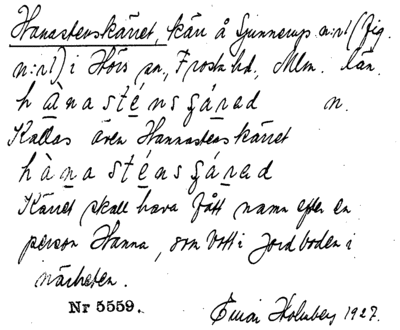 Hanastenskärret, kärr å Gunnerup n:r1 (Jfg.
n:r1) i Hörs sn., Frosta hd., Mlm. län.
hànasténsgárad n.
Kallas även Hannastenskärret
hànasténsgárad
Kärret skall hava fått namn efter en
person Hanna, som bott i jordboden i
närheten.
Nr 5559.
Einar Holmberg 1927.